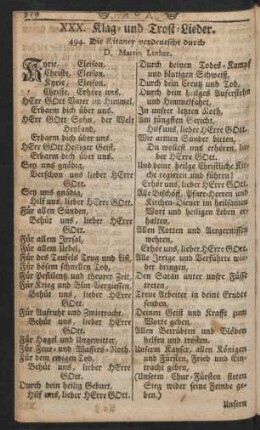 XXX. Klag- und Trost-Lieder.
494. Die Litaney verdeutscht durch
D. Martin Luther.
Kyrie, Eleison.
Christe, Eleison.
Kyrie, Eleison.
Christe, Erhöre uns.
HErr GOtt Vater im Himmel,
Erbarm dich über uns.
HErr GOtt Sohn, der Welt
Heyland,
Erbarm dich über uns.
HErr GOtt Heiliger Geist,
Erbarm dich über uns.
Sey uns gnädig,
Verschon uns lieber HErre
GOtt.
Sey uns gnädig,
Hilf uns, lieber HErre GOtt.
Für allen Sünden,
Behüt uns, lieber HErre
GOtt.
Für allem Irrsal,
Für allem Übel,
Für des Teufels Trug und List,
Für bösem schnellen Tod,
Für Pestilentz und theurer Zeit,
Für Krieg und Blut-Vergiessen,
Behüt uns, lieber HErre
GOtt,
Für Aufruhr und Zwietracht,
Behüt uns, lieber HErre
GOtt.
Für Hagel und Ungewitter,
Für Feur- und Wassers-Noth,
Für dem ewigen Tod,
Behüt uns, lieber HErre
GOtt.
Durch dein heilig Geburt,
Hilf uns, lieber HErre GOtt.
Durch deinen Todes-Kampf
und blutigen Schweiß,
Durch dein Creutz und Tod,
Durch dein heiliges Auferstehn
und Himmelfahrt,
In unser letzten Noth,
Am jüngsten Gericht,
Hilf uns, lieber HErre GOtt.
Wir armen Sünder bitten,
Du wollest uns erhören, lie-
ber HErre GOtt.
Und deine heilge Christliche Kir-
che regieren und führen!
Erhör uns, lieber HErre GOtt.
Alle Bischöff, Pfarr-Herren und
Kirchen-Diener im heilsamen
Wort und heiliger Leben er-
halten,
Allen Rotten und Aergernissen
wehren,
Erhör uns, lieber HErre GOtt.
Alle Irrige und Verführte wie-
der bringen,
Den Satan unter unsre Füsse
treten,
Treue Arbeiter in deine Erndte
senden,
Deinen Geist und Krafft zum
Worte geben,
Allen Betrübten und Blöden
helfen und trösten,
Unserm Kayser, allen Königen
und Fürsten, Fried und Ein-
tracht geben,
(Unserm Chur-Fürsten steten
Sieg wider seine Feinde ge-
ben,)
Unsern